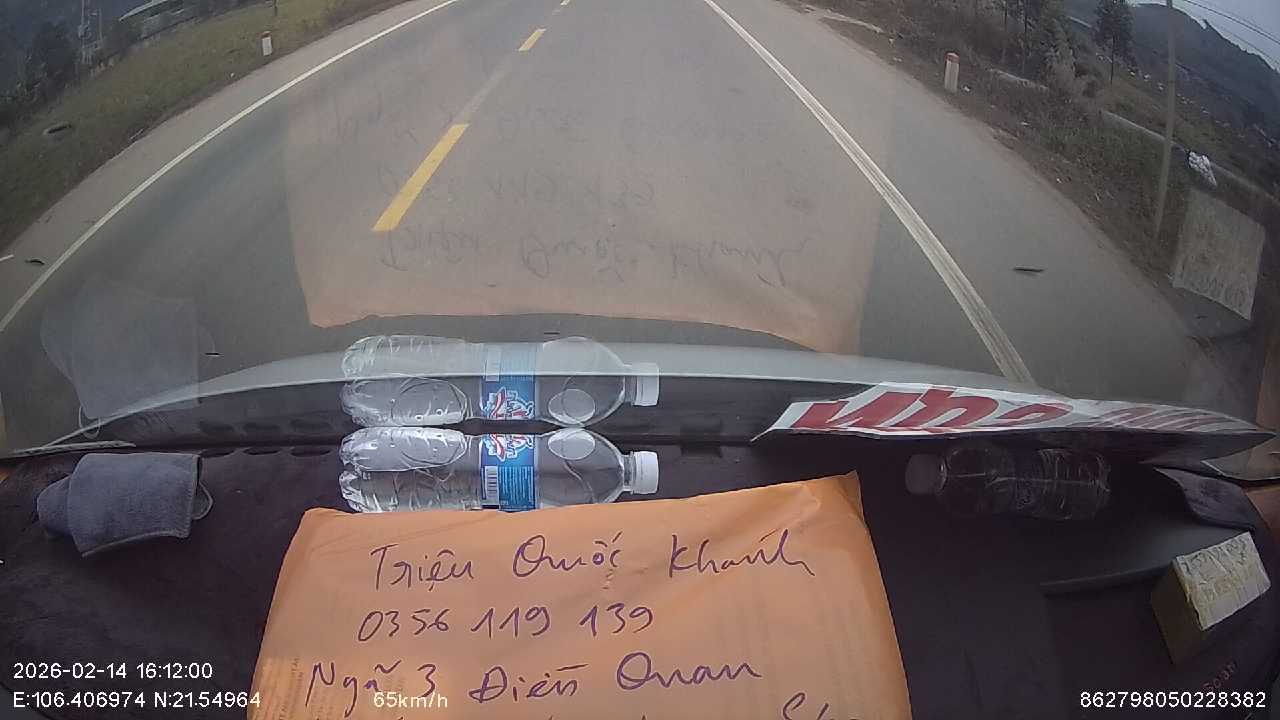 Triệu Quốc Khanh
0356 119 139
Ngã 3 Điền Quan
2026-02-14 16:12:00
E:106.406974 N:21.54964 65km/h 862798050228382